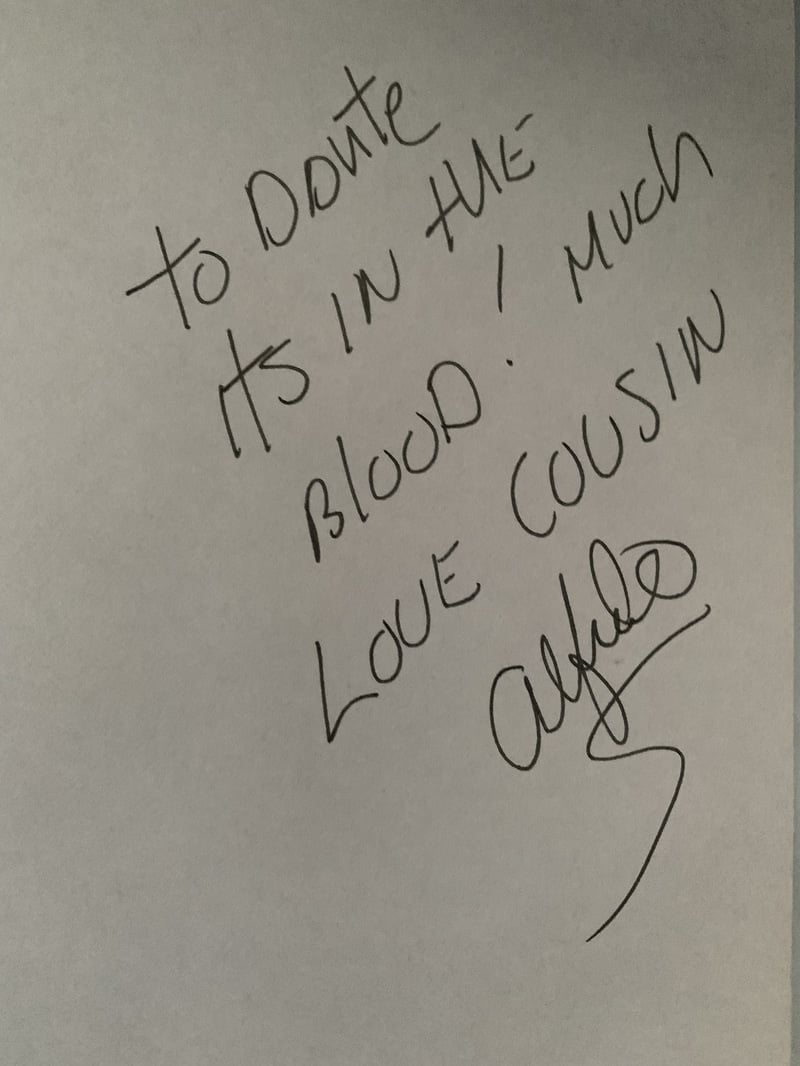 to Donte
Its IN tHE
BlOOD! MUCh
LOVE COUSIN
Alfredo